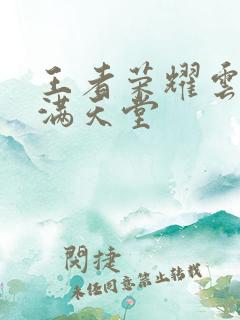 王者荣耀雲
满天堂
閔捷
未经同意禁止转载